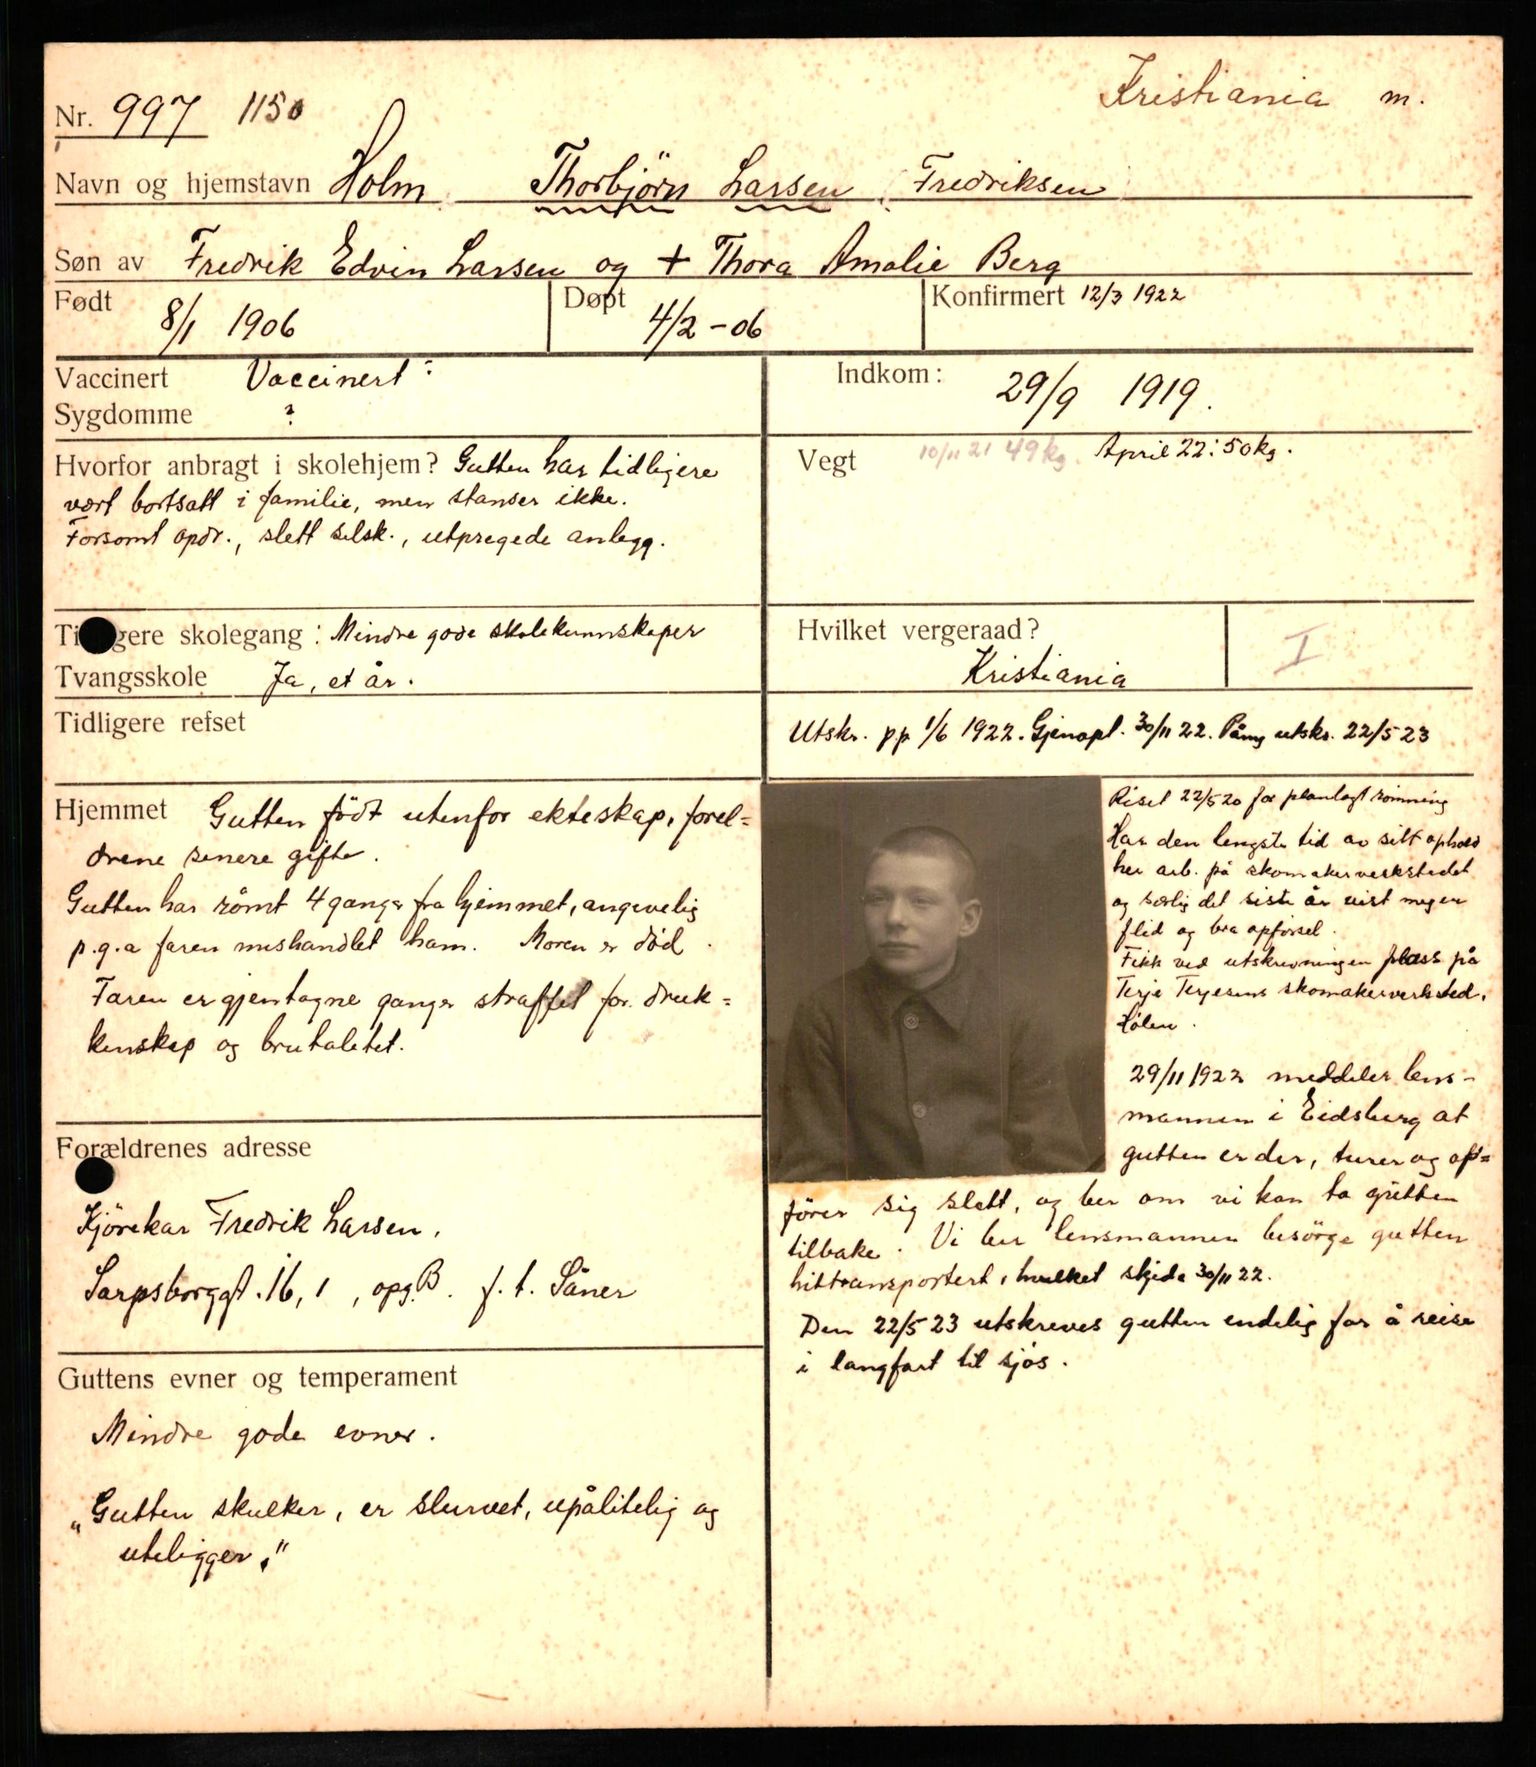 Kristiania m.
Nr. 997 1150
Navn og hjemstavn Holm Thorbjörn Larsen, Fredriksen
Søn av Fredrik Edvin Larsen og + Thora Amalie Berg
Født 8/1 1906
Døpt 4/2 - 06
Konfirmert 12/3 1922
Vaccinert Vaccinert?
Sygdomme ?
Indkom: 29/9 1919.
Hvorfor anbragt i skolehjem? Gutten har tidligere
vært bortsatt i familie, men stanser ikke.
Forsømt opdr., slett selsk., utpregede anlegg.
Vegt 10/11 21 49 kg. April 22: 50 kg.
Ti gere skolegang: Mindre gode skolekunnskaper
Tvangsskole Ja, et år.
Hvilket vergeraad?
Kristiania
I
Tidligere refset
Utskr. pp 1/6 1922. Gjenopt. 30/11 22. Påny utskr. 22/5 23
Hjemmet Gutten födt utenfor ekteskap, forel=
drene senere gifte.
Gutten har römt 4 ganger fra hjemmet, angivelig
p.g.a faren mishandlet ham. Moren er död.
Faren er gjentagne ganger straffet for druk=
kenskap og brutalitet.
Forældrenes adresse
Kjörekar Fredrik Larsen,
Sarpsborggt. 16, 1, opg. B. f. t. Såner
Guttens evner og temperament
Mindre gode evner.
„Gutten skulker, er slurvet, upålitelig og
uteligger."
Riset 22/5 20 for planlagt römning
Har den lengste tid av sitt ophold
her arb. på skomakerverkstedet
og særlig det siste år vist megen
flid og bra opförsel.
Fikk ved utskrivningen plass på
Terje Terjesens skomakerverksted,
Hölen.
29/11 1922 meddeler lens-
mannen i Eidsberg at
gutten er der, turer og op=
förer sig slett, og ber om vi kan ta gutten
tilbake. Vi ber lensmannen besörge gutten
hittransportert, hvilket skjede 30/11 22.
Den 22/5 23 utskreves gutten endelig for å reise
i langfart til sjös.